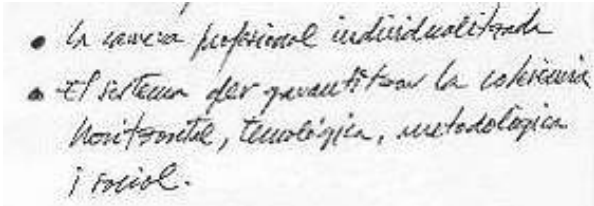 • la carrera profesional individualitzada
• El sistema per garantitzar la coherència
horitzontal, tecnològica, metodològica
i social.